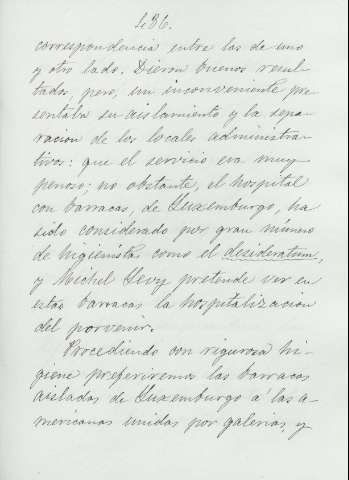 486.
correspondencia entre las de uno
y otro lado. Dieron buenos resul-
tados, pero, un inconveniente pre-
sentaba su aislamiento y la sepa-
racion de los locales administra-
tivos: que el servicio era muy
penoso; no obstante, el hospital
con barracas, de Luxemburgo, ha
sido considerado por gran número
de higienistas como el desideratum,
y Michel Levy pretende ver en
estas barracas la hospitalizacion
del porvenir.
Procediendo con rigurosa hi-
giene preferiremos las barracas
aisladas de Luxemburgo á las a-
mericanas unidas por galerias, y